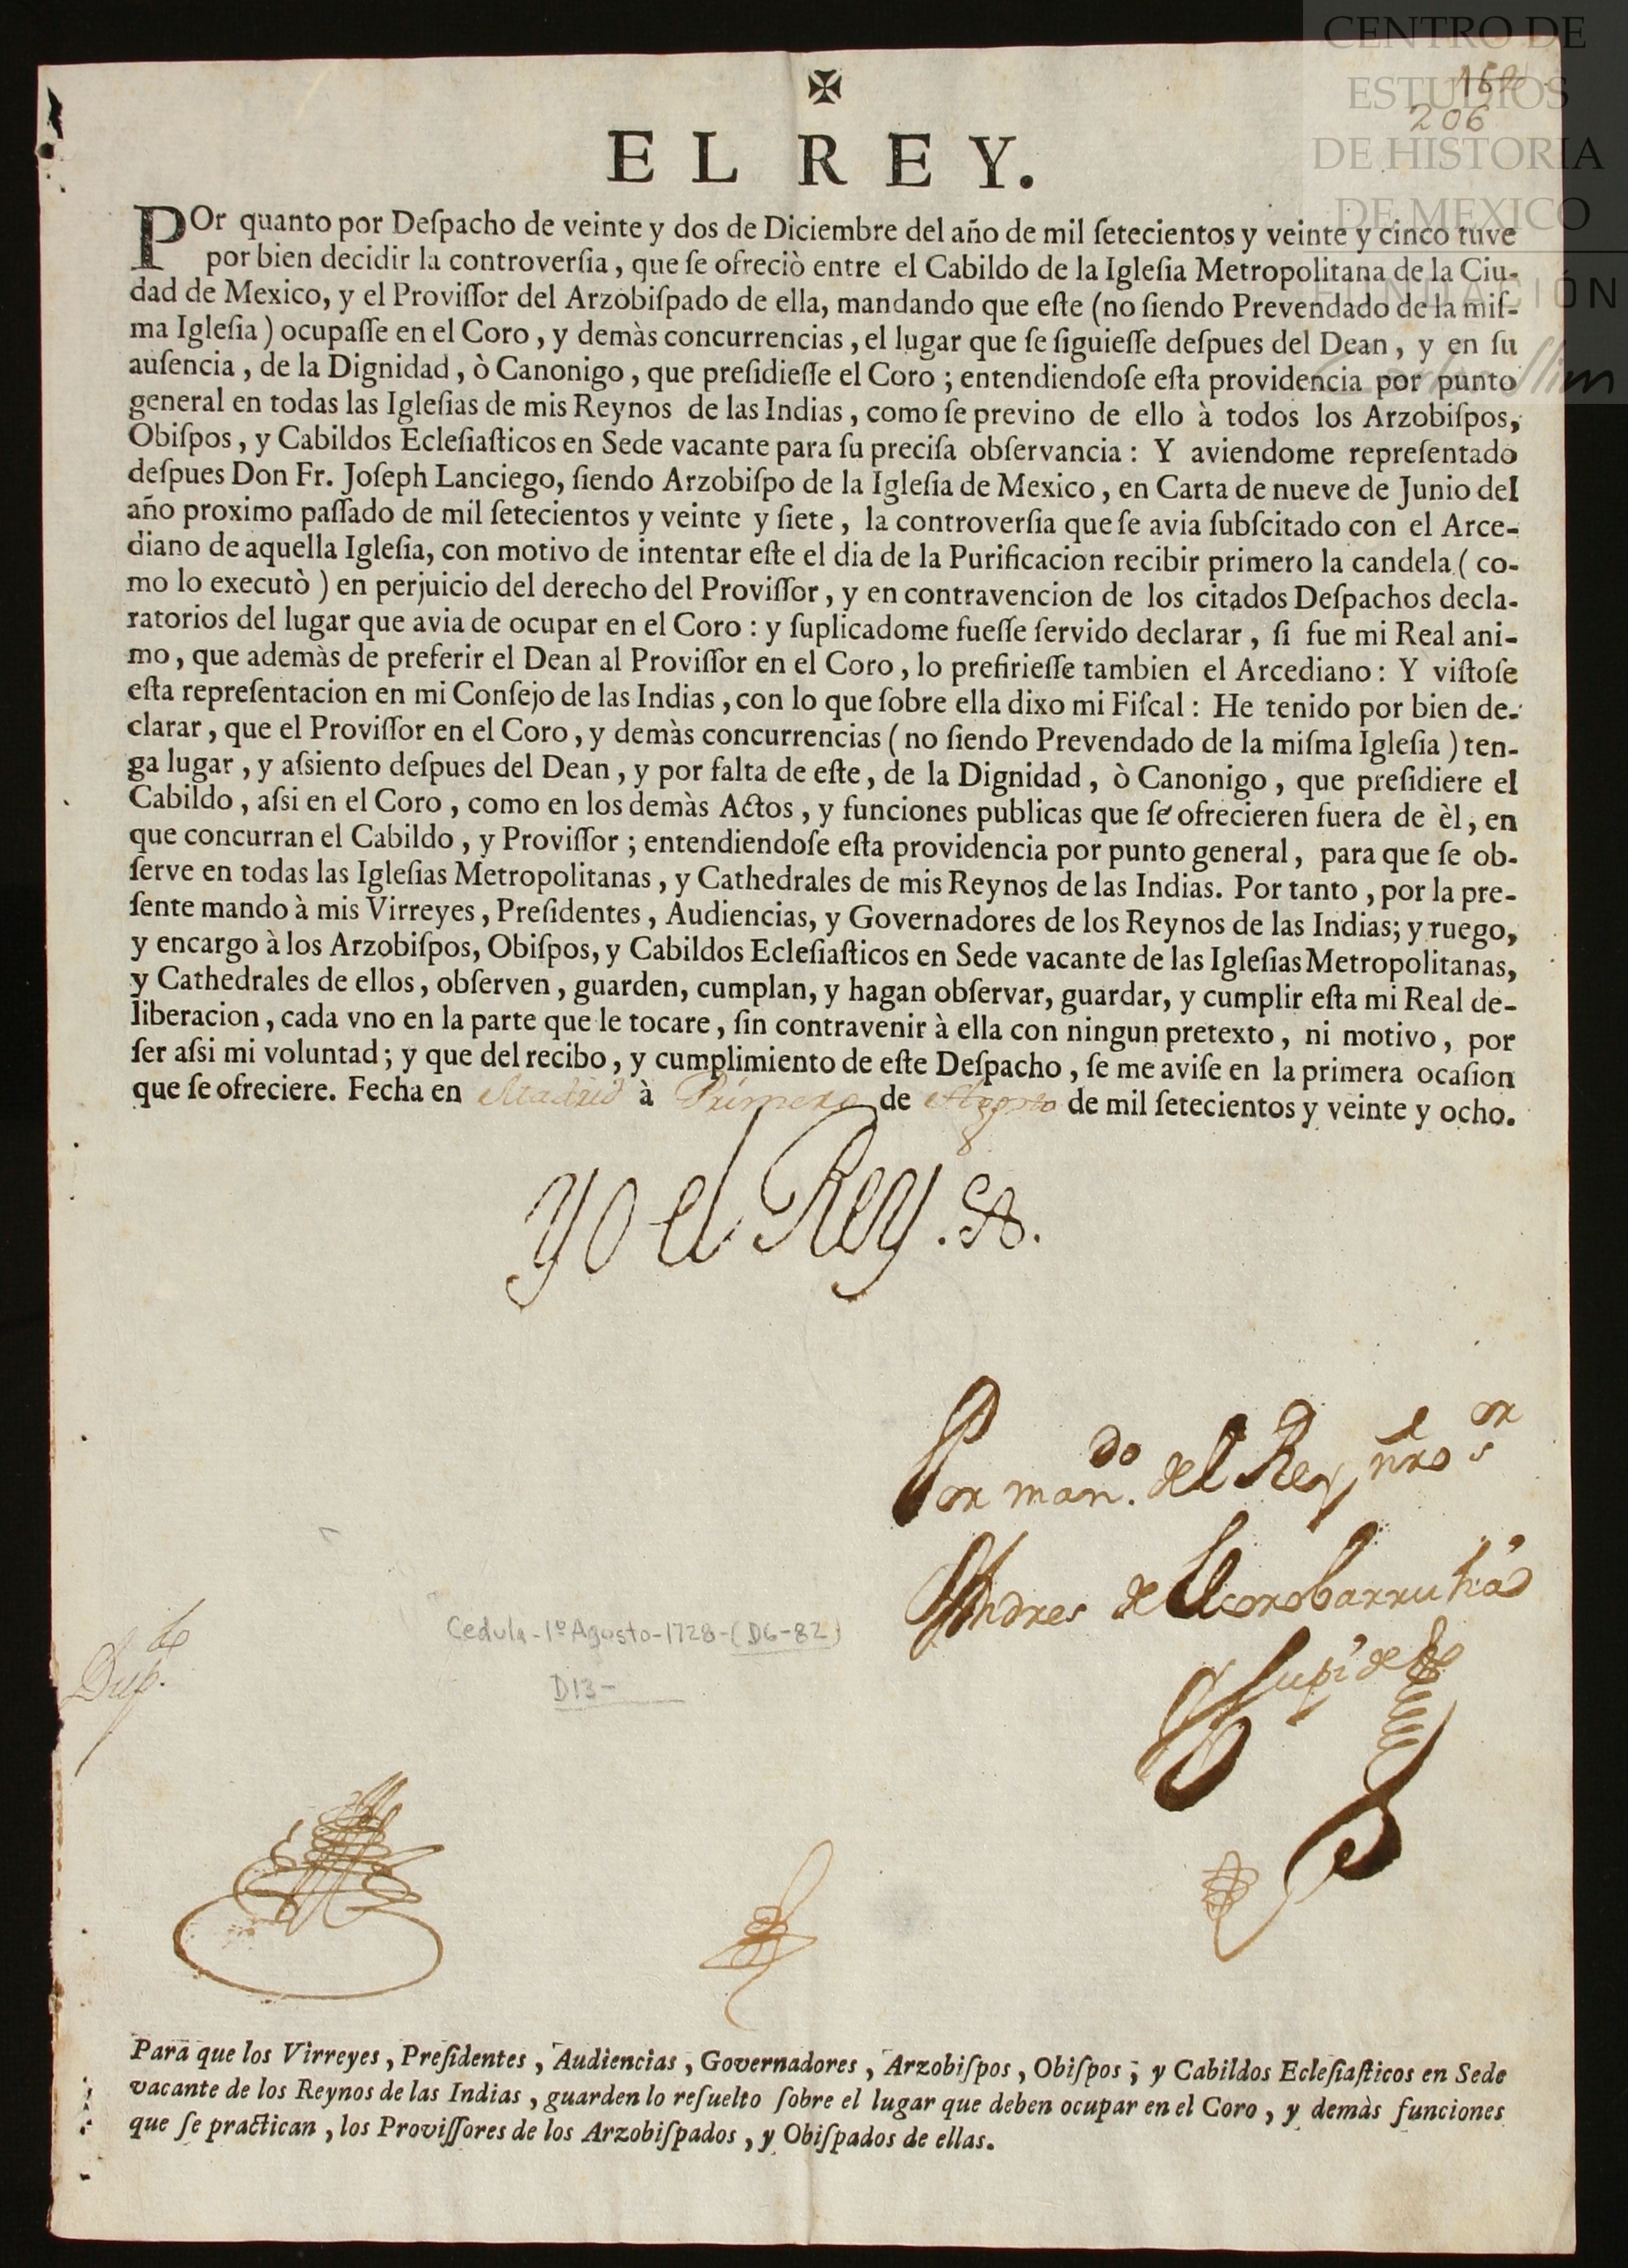 CENTRO DE
ESTUDIOS
DE HISTORIA
DE MEXICO
FUNDACIÓN
Carlos Slim
206
✠
EL REY.
POr quanto por Deſpacho de veinte y dos de Diciembre del año de mil ſetecientos y veinte y cinco tuve
por bien decidir la controverſia, que ſe ofreciò entre el Cabildo de la Igleſia Metropolitana de la Ciu-
dad de Mexico, y el Proviſſor del Arzobiſpado de ella, mandando que eſte (no ſiendo Prevendado de la miſ-
ma Igleſia) ocupaſſe en el Coro, y demàs concurrencias, el lugar que ſe ſiguieſſe deſpues del Dean, y en ſu
auſencia, de la Dignidad, ò Canonigo, que preſidieſſe el Coro; entendiendoſe eſta providencia por punto
general en todas las Igleſias de mis Reynos de las Indias, como ſe previno de ello à todos los Arzobiſpos,
Obiſpos, y Cabildos Ecleſiaſticos en Sede vacante para ſu preciſa obſervancia: Y aviendome repreſentado
deſpues Don Fr. Joſeph Lanciego, ſiendo Arzobiſpo de la Igleſia de Mexico, en Carta de nueve de Junio del
año proximo paſſado de mil ſetecientos y veinte y ſiete, la controverſia que ſe avia ſubſcitado con el Arce-
diano de aquella Igleſia, con motivo de intentar eſte el dia de la Purificacion recibir primero la candela (co-
mo lo executò) en perjuicio del derecho del Proviſſor, y en contravencion de los citados Deſpachos decla-
ratorios del lugar que avia de ocupar en el Coro: y ſuplicadome fueſſe ſervido declarar, ſi fue mi Real ani-
mo, que ademàs de preferir el Dean al Proviſſor en el Coro, lo prefirieſſe tambien el Arcediano: Y viſtoſe
eſta repreſentacion en mi Conſejo de las Indias, con lo que ſobre ella dixo mi Fiſcal: He tenido por bien de-
clarar, que el Proviſſor en el Coro, y demàs concurrencias (no ſiendo Prevendado de la miſma Igleſia) ten-
ga lugar, y aſsiento deſpues del Dean, y por falta de eſte, de la Dignidad, ò Canonigo, que preſidiere el
Cabildo, aſsi en el Coro, como en los demàs Actos, y funciones publicas que ſe ofrecieren fuera de èl, en
que concurran el Cabildo, y Proviſſor; entendiendoſe eſta providencia por punto general, para que ſe ob-
ſerve en todas las Igleſias Metropolitanas, y Cathedrales de mis Reynos de las Indias. Por tanto, por la pre-
ſente mando à mis Virreyes, Preſidentes, Audiencias, y Governadores de los Reynos de las Indias; y ruego,
y encargo à los Arzobiſpos, Obiſpos, y Cabildos Ecleſiaſticos en Sede vacante de las Igleſias Metropolitanas,
y Cathedrales de ellos, obſerven, guarden, cumplan, y hagan obſervar, guardar, y cumplir eſta mi Real de-
liberacion, cada vno en la parte que le tocare, ſin contravenir à ella con ningun pretexto, ni motivo, por
ſer aſsi mi voluntad; y que del recibo, y cumplimiento de eſte Deſpacho, ſe me aviſe en la primera ocaſion
que ſe ofreciere. Fecha en Madrid à Primero de Agosto de mil ſetecientos y veinte y ocho.
Yo el Rey.
Por man.do del Rey nro s.or
Andres de Elcorobarrutia
Cedula-1º Agosto-1728-(D6-82)
D13-
Dup.do
Para que los Virreyes, Preſidentes, Audiencias, Governadores, Arzobiſpos, Obiſpos, y Cabildos Ecleſiaſticos en Sede
vacante de los Reynos de las Indias, guarden lo reſuelto ſobre el lugar que deben ocupar en el Coro, y demàs funciones
que ſe practican, los Proviſſores de los Arzobiſpados, y Obiſpados de ellas.